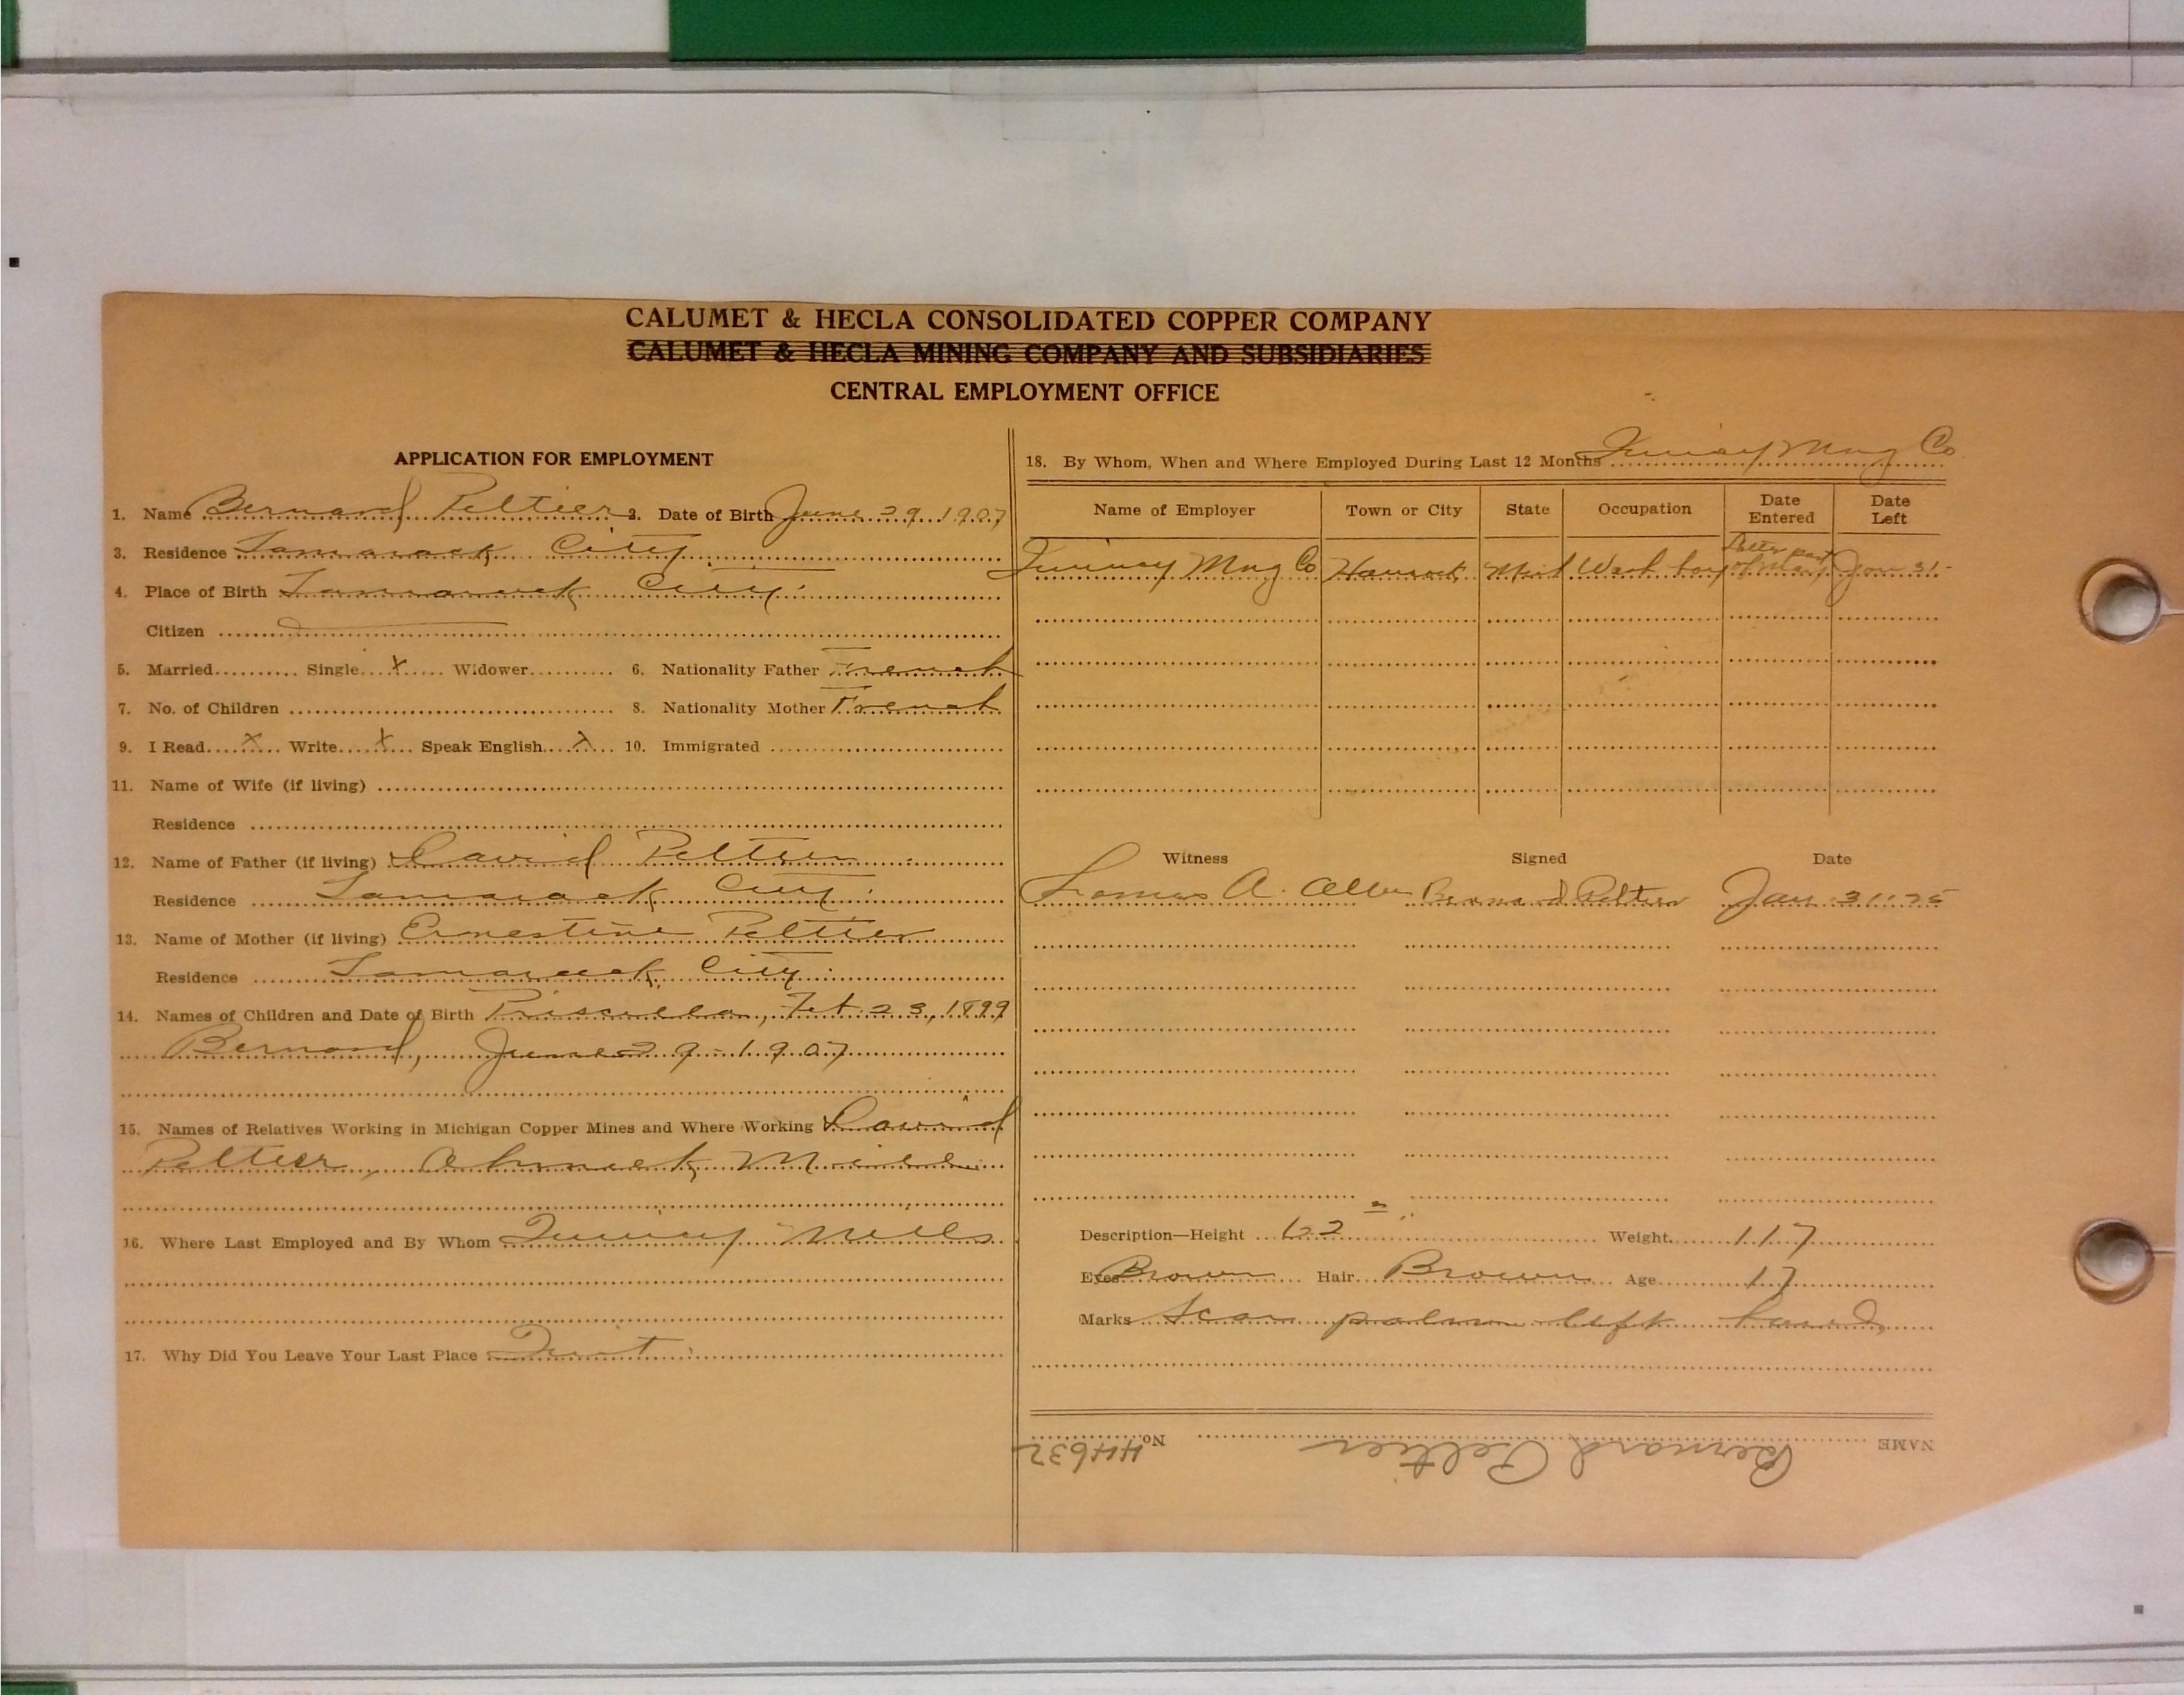 CALUMET & HECLA CONSOLIDATED COPPER COMPANY
CALUMET & HECLA MINING COMPANY AND SUBSIDIARIES
CENTRAL EMPLOYMENT OFFICE
APPLICATION FOR EMPLOYMENT
1. Name Bernard Peltier 2. Date of Birth June 29 1907
3. Residence Tamarack City
4. Place of Birth Tamarack City
Citizen
5. Married Single x Widower 6. Nationality Father French
7. No. of Children 8. Nationality Mother French
9. I Read x Write x Speak English x 10. Immigrated
11. Name of Wife (if living)
Residence
12. Name of Father (if living) David Peltier
Residence Tamarack City
13. Name of Mother (if living) Ernestine Peltier
Residence Tamarack City
14. Names of Children and Date of Birth Priscilla, Feb. 23, 1899
Bernard, June 29-1907
15. Names of Relatives Working in Michigan Copper Mines and Where Working David
Peltier, Ahmeek Mill
16. Where Last Employed and By Whom Quincy Mills
17. Why Did You Leave Your Last Place Quit
18. By Whom, When and Where Employed During Last 12 Months Quincy Mng Co
Name of Employer Town or City State Occupation Date Entered Date Left
Quincy Mng Co Hancock Mich Wash boy Latter part of May Jan 31-
Witness Signed Date
Thomas A. Bernard Peltier Jan 31-25
Description—Height 62 Weight 117
Eyes Brown Hair Brown Age 17
Marks Scar palm left hand
NAME Bernard Peltier No. 44632